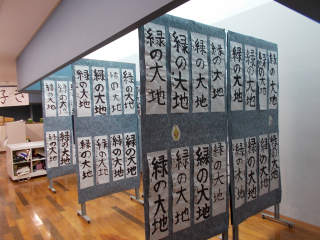 緑の大地
緑の大地
緑の大地
緑の大地
緑の大地
緑の大地
緑の大地
緑の大地
緑の大地
緑の大地
緑の大地
緑の大地
緑の大地
緑の大地
緑の大地
緑の大地
緑の大地
緑の大地
緑の大地
緑の大地
緑の大地
緑の大地
緑の大地
緑の大地
緑の大地
緑の大地
緑の大地
緑の大地